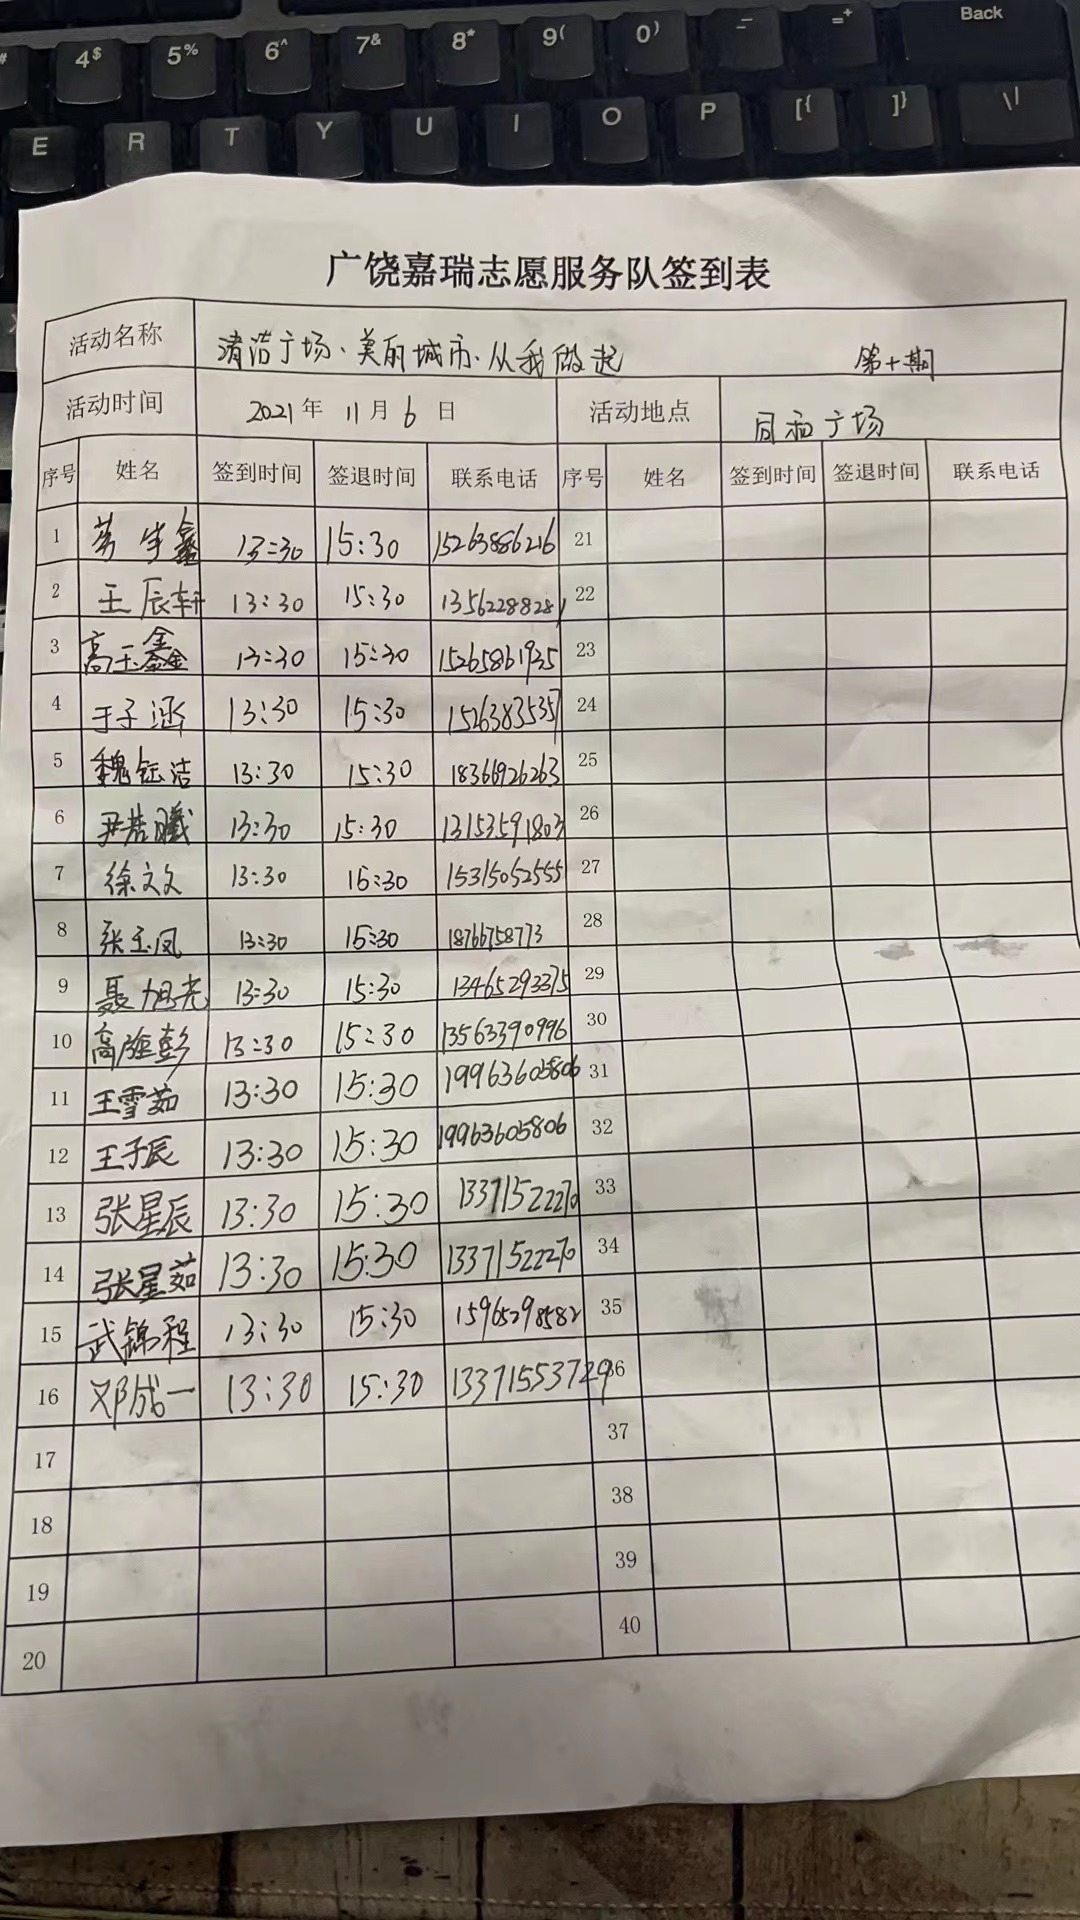 4$ 5% 6^ 7& 8* 9( 0) _- =+ Back
E R T Y U I O P [{ ]} \|
广饶嘉瑞志愿服务队签到表
活动名称 清洁广场、美丽城市、从我做起 第十期
活动时间 2021年 11月 6日 活动地点 同和广场
序号 姓名 签到时间 签退时间 联系电话 序号 姓名 签到时间 签退时间 联系电话
1 宇鑫 13:30 15:30 15263886216 21
2 王辰轩 13:30 15:30 13562288281 22
3 高玉鑫 13:30 15:30 15265861935 23
4 于子涵 13:30 15:30 15263835357 24
5 魏钰洁 13:30 15:30 18366926263 25
6 尹若曦 13:30 15:30 13153591803 26
7 徐文文 13:30 15:30 15315052555 27
8 张玉凤 13:30 15:30 18766758773 28
9 聂旭光 13:30 15:30 13465293375 29
10 高隆彭 13:30 15:30 13563390996 30
11 王雪茹 13:30 15:30 19963605806 31
12 王子辰 13:30 15:30 19963605806 32
13 张星辰 13:30 15:30 13371522270 33
14 张星茹 13:30 15:30 13371522270 34
15 武锦程 13:30 15:30 15965298582 35
16 邓成一 13:30 15:30 13371553729 36
17 37
18 38
19 39
20 40